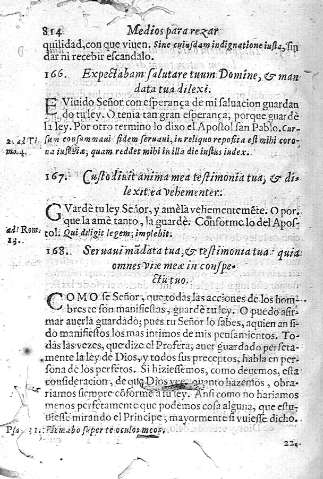 814 Medios para rezar
quilidad, con que viuen. Sine cuiusdam indignatione iusta, sin
dar ni recebir escandalo.
166. Expectabam salutare tuum Domine, & man
data tua dilexi.
E Viuido Señor con esperança de mi saluacion guardan
do tu ley. O tenia tan gran esperança, porque guardè
la ley. Por otro termino lo dixo el Apostol san Pablo. Cur-
2. ad Ti sum consummaui fidem seruaui, in reliquo reposita est mihi coro
mo. 4. na iustitiæ, quam reddet mihi in illa die iustus iudex.
167. Custodiuit anima mea testimonia tua, & di-
lexit ea vehementer.
G Vardè tu ley Señor, y amèla vehementemẽte. O por
que la amè tanto, la guardè. Conforme lo del Apos-
ad Rom. tol. Qui diligit legem, impleuit.
13.
168. Seruaui mãdata tua, & testimonia tua: quia
omnes viæ meæ in conspe-
ctu tuo.
COMO se Señor, que todas las acciones de los hom-
bres te son manifiestas, guardè tu ley. O puedo afir-
mar auerla guardado; pues tu Señor lo sabes, a quien an si-
do manifiestos los mas intimos de mis pensamientos. To-
das las vezes, que dize el Profeta, auer guardado perfeta-
mente la ley de Dios, y todos sus preceptos, habla en per-
sona de los perfetos. Si hiziessemos, como deuemos, esta
consideracion, de que Dios vee, quanto hazemos, obra-
riamos siempre cõforme a tu ley. Ansi como no hariamos
menos perfetamente que podemos cosa alguna, que estu-
uiesse mirando el Principe, mayormente si vuiesse dicho.
Psa. 31. Firmabo super te oculos meos.